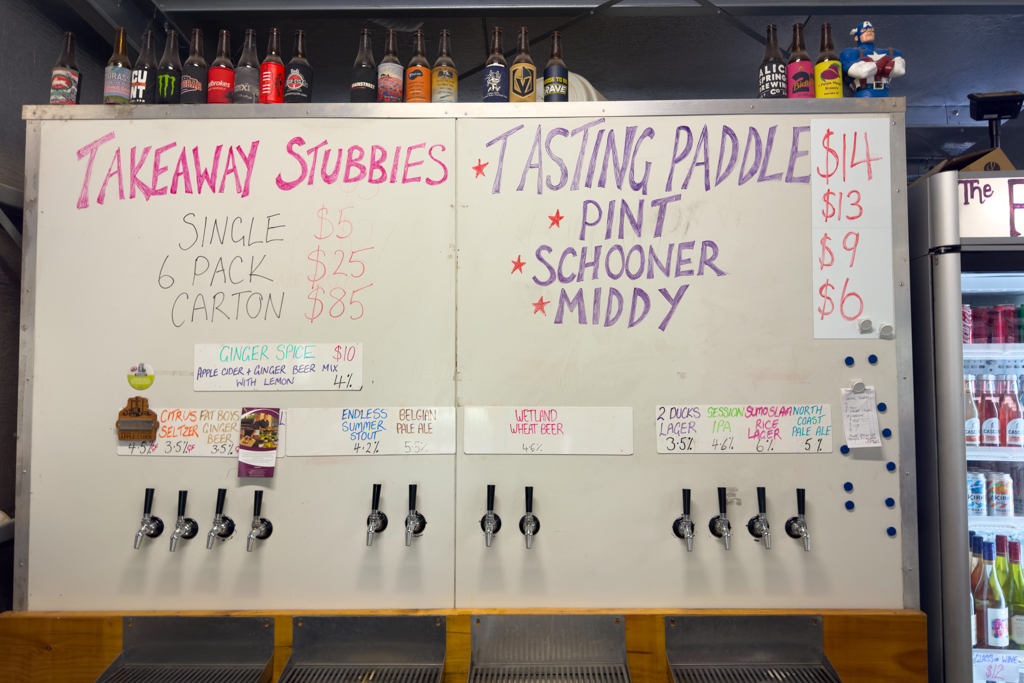 TAKEAWAY STUBBIES
SINGLE $5
6 PACK $25
CARTON $85
TASTING PADDLE $14
PINT $13
SCHOONER $9
MIDDY $6
GINGER SPICE $10
APPLE CIDER + GINGER BEER MIX
WITH LEMON 4%
CITRUS
SELTZER
3.5%
FAT BOYS
GINGER
BEER
3.5%
4.5%
ENDLESS
SUMMER
STOUT
4.2%
BELGIAN
PALE ALE
5.5%
WETLAND
WHEAT BEER
4.6%
2 DUCKS
LAGER
3.5%
SESSION
IPA
4.6%
SUMOSLAM
RICE
LAGER
6%
NORTH
COAST
PALE ALE
5%
The
GLASS OF WINE
$12
ALICE
SPRINGS
BREWING